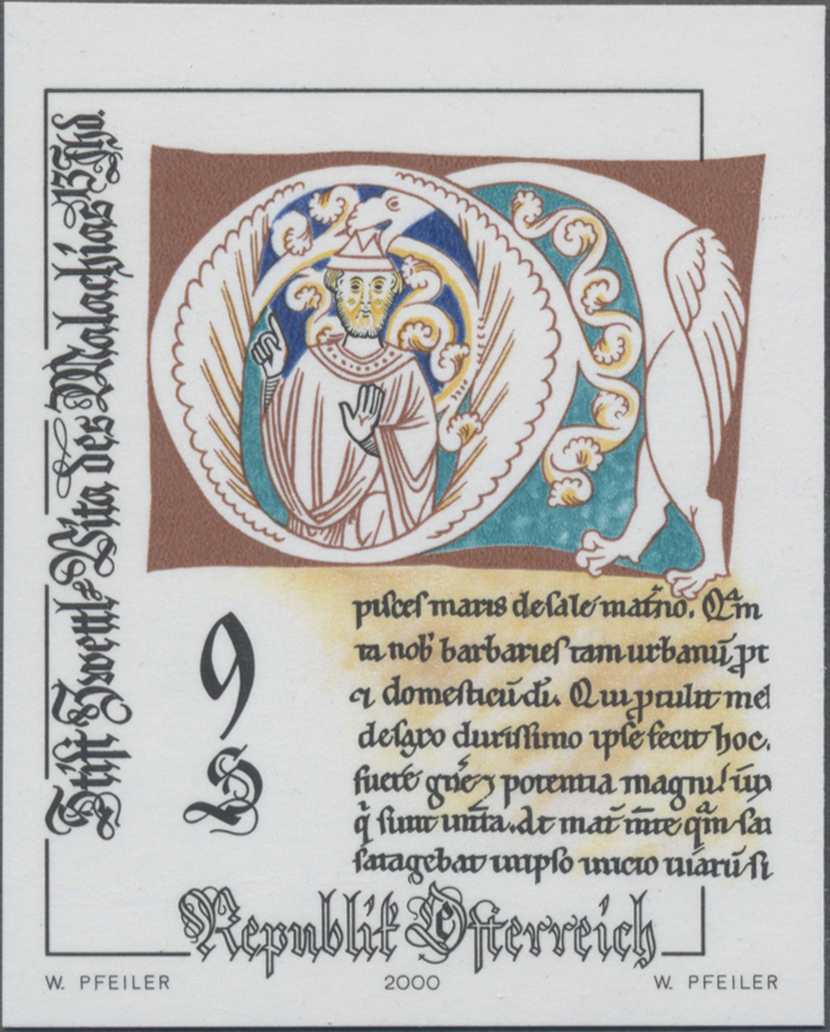 Stift Zwettl-Vita des Malachias 13. Jhd.
pisces maris de sale mat̄no. Qm̄
ta nob' barbaries tam urbanū ꝓt
⁊ domesticū di. Qui ꝓtulit mel
de saxo durissimo ipse fecit hoc.
potentia magni
q̇ sunt unīta. At mat̄
satagebat in ipso inicio uiarū si
9
S
Republik Österreich
W. PFEILER 2000 W. PFEILER